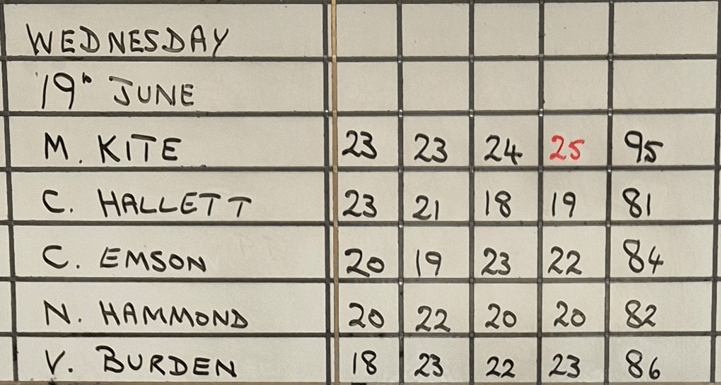 WEDNESDAY
19th JUNE
M. KITE 23 23 24 25 95
C. HALLETT 23 21 18 19 81
C. EMSON 20 19 23 22 84
N. HAMMOND 20 22 20 20 82
V. BURDEN 18 23 22 23 86